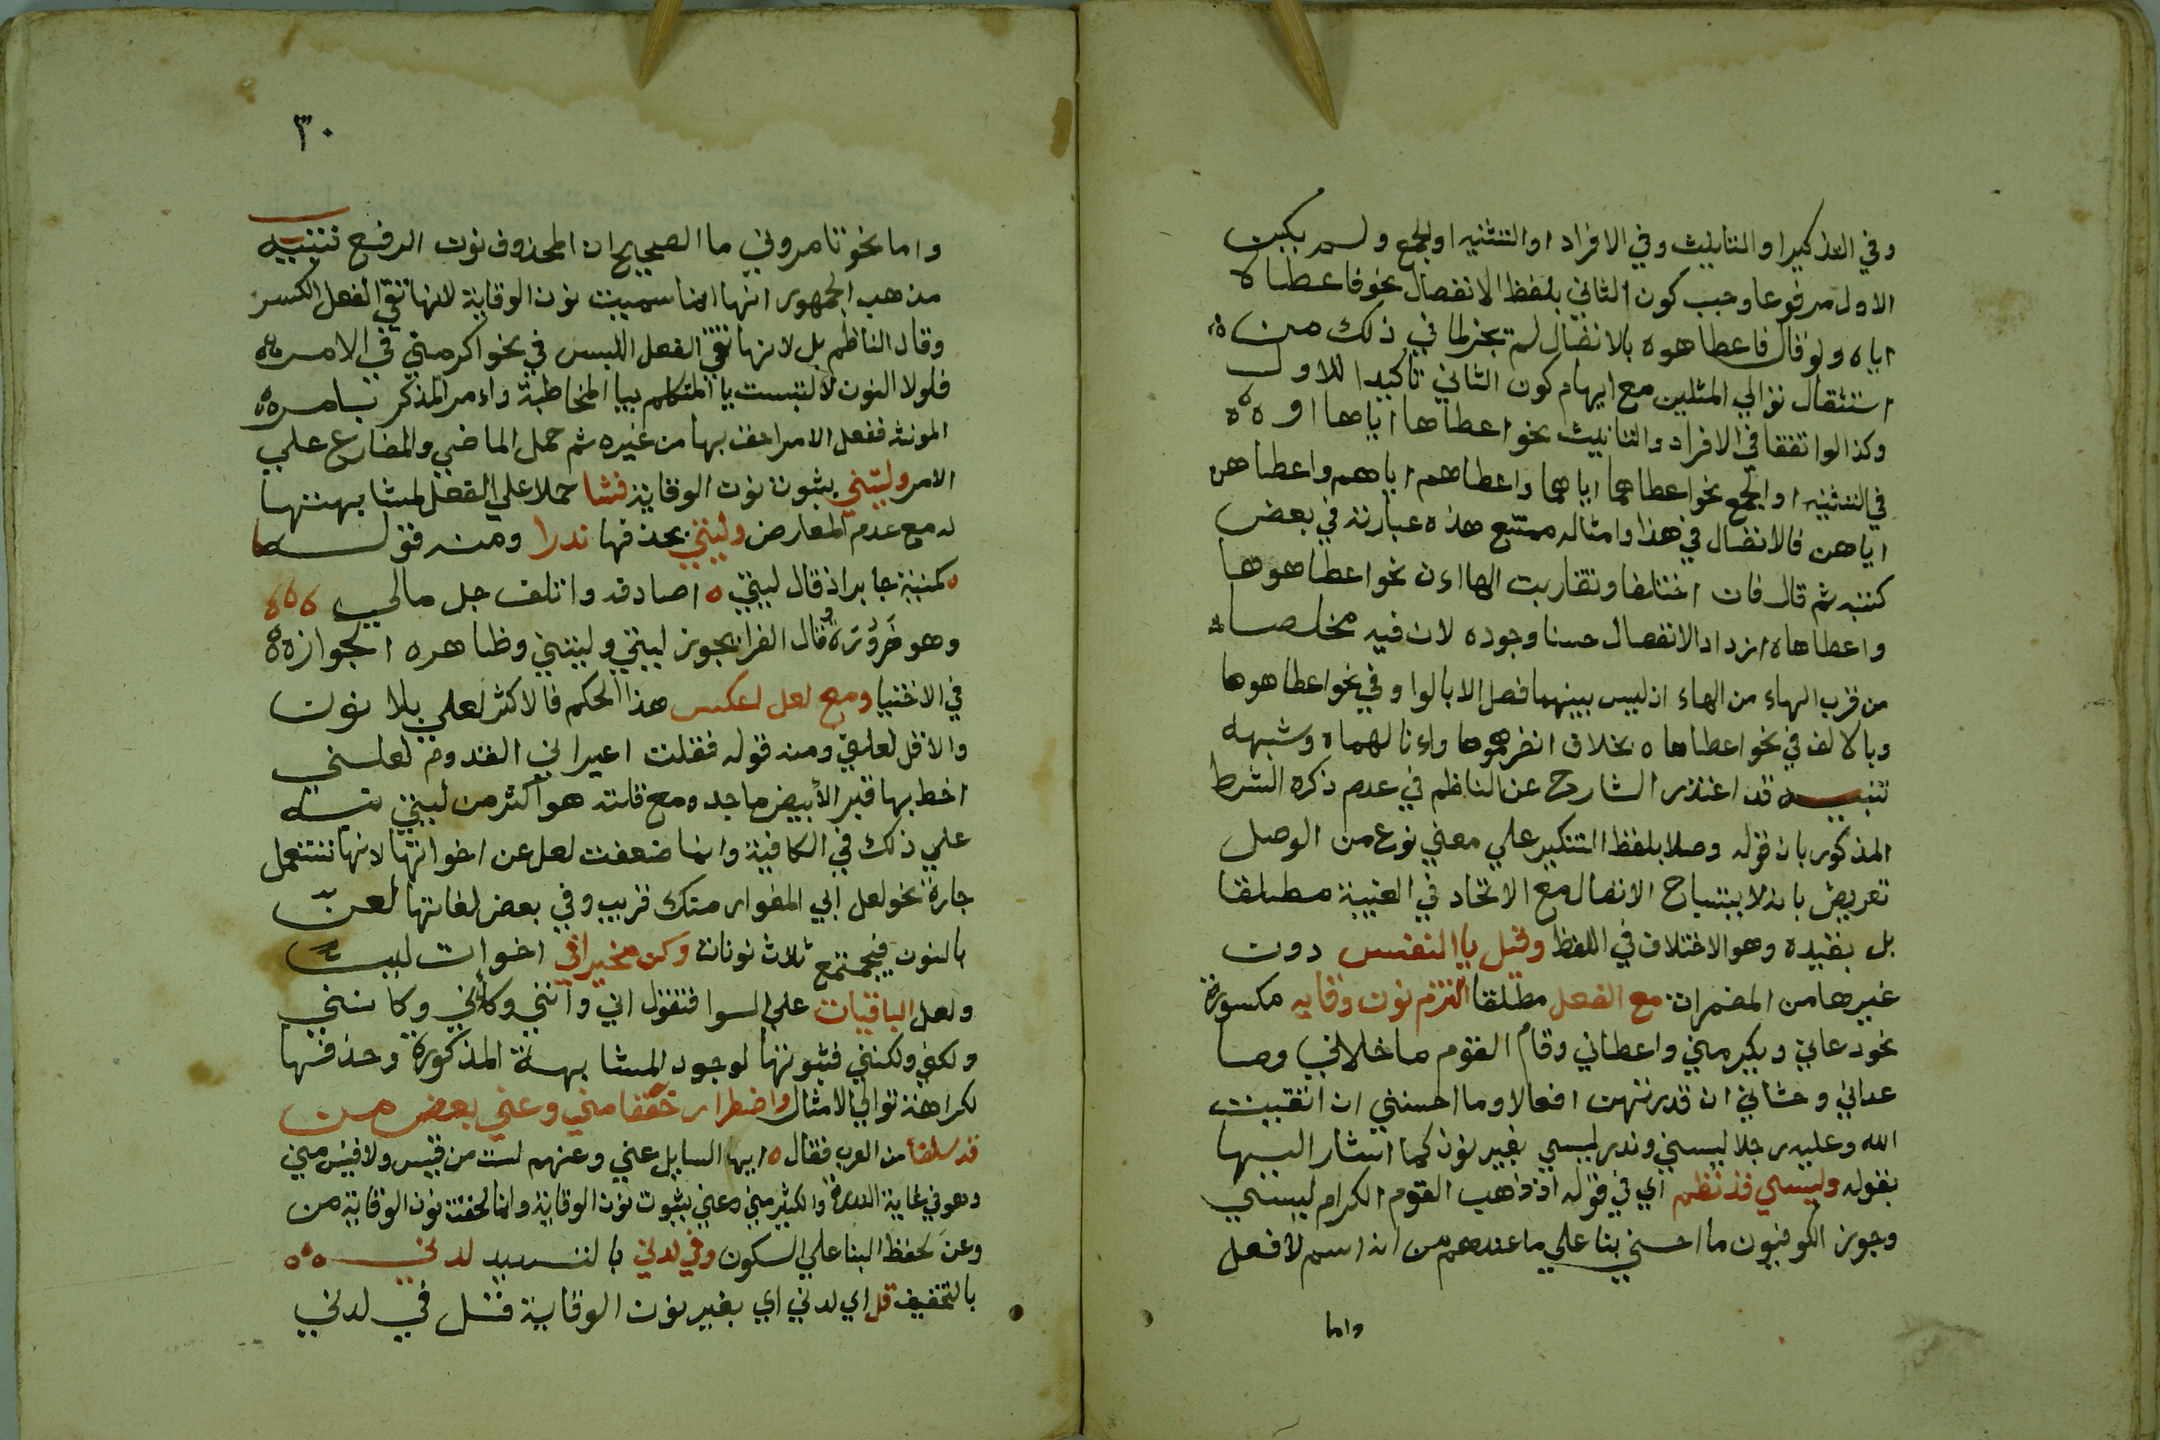 وفي التذكير او التانيث وفي الافراد او التثنيه او الجمع ولم يكن
الاول مرفوعا وجب كون الثاني بلفظ الانفصال نحو فاعطاه
اياه ولو قال فاعطاهوه بالاتصال لم يجز لما في ذلك من
استثقال توالي المثلين مع ايهام كون الثاني تاكيدا للاول
وكذا لو اتفقا في الافراد والتانيث نحو اعطاها اياها او
في التثنيه او الجمع نحو اعطاهما اياهما واعطاهم اياهم واعطاهن
اياهن فالاتصال في هذا وامثاله ممتنع هذه عبارته في بعض
كتبه ثم قال فان اختلفا وتقاربت الهاءان نحو اعطاهوها
واعطاهاه ازداد الانفصال حسنا وجوده لان فيه مخلصا
من قرب الهاء من الهاء اذ ليس بينهما فصل الا بالواو في نحو اعطاهوها
وبالالف في نحو اعطاهاه بخلاف انضرهموها وانالهماه وشبهه
تنبيه قد اعتذر الشارح عن الناظم في عدم ذكره الشرط
المذكور بان قوله وصلا بلفظ التنكير علي معني نوع من الوصل
تعريض بانه لا يستباح الاتصال مع الاتحاد في الغيبة مطلقا
بل بقيده وهو الاختلاف في اللفظ وقبل يا النفس دون
غيرها من المضمرات مع الفعل مطلقا التزم نون وقايه مكسورة
نحو دعاني ويكرمني واعطاني وقام القوم ما خلاني وما
عداني وحشاني ان قدرتهن افعالا وما احسنني ان اتقيت
الله وعليه رجلا ليسني وندر ليسي بغير نون كما اشار اليها
بقوله وليسي قد نظم اي في قوله اذ ذهب القوم الكرام ليسي
وجوز الكوفيون ما احسني بنا علي ما عندهم من انه اسم لا فعل
واما
٣٠
واما نحو تامروني ما الصحيح ان المحذوف نون الرفع تنبيه
مذهب الجمهور انها انما سميت نون الوقاية لانها تقي الفعل الكسر
وقال الناظم بل لانها تقي الفعل اللبس في نحو اكرمني في الامر
فلولا النون لالتبست يا المتكلم بيا المخاطبة وامر المذكر بامر
المونثه ففعل الامر احق بها من غيره ثم حمل الماضي والمضارع علي
الامر وليتني بثبوت نون الوقاية فشا حملا علي الفعل لمشابهتها
له مع عدم المعارض وليتي بحذفها ندرا ومنه قوله
كمنية جابر اذ قال ليتي ه اصادفه واتلف جل مالي
وهو ضرورة وقال الفرا يجوز ليتي وليتني وظاهره الجواز
في الاختيا ومع لعل اعكس هذا الحكم فالاكثر لعلي بلا نون
والاقل لعلني ومنه قوله فقلت اعيراني القدوم لعلني
اخط بها قبرا لأبيض ماجد ومع قلته هو اكثر من ليتي نبه
علي ذلك في الكافية وانما ضعفت لعل عن اخواتها لانها تستعمل
جارة نحو لعل ابي المغوار منك قريب وفي بعض لغاتها لعن
بالنون فيجتمع ثلاث نونات وكن مخيرا في اخوات ليت
ولعل الباقيات علي السوا فتقول اني وانني وكأني وكانني
ولكني ولكنني فثبوتها لوجود المشابهة المذكورة وحذفها
لكراهة توالي الامثال واضطرارا خففا مني وعني بعض من
قد سلفا من العرب فقال ه ايها السايل عني وعنهم لست من قيس ولا قيس مني
وهو في غاية الندرة والكثير مني وعني بثبوت نون الوقاية وانما لحقت نون الوقاية من
وعن لحفظ البنا علي السكون وفي لدني بالتشديد لدني
بالتخفيف قل اي لدني اي بغير نون الوقاية قل في لدني